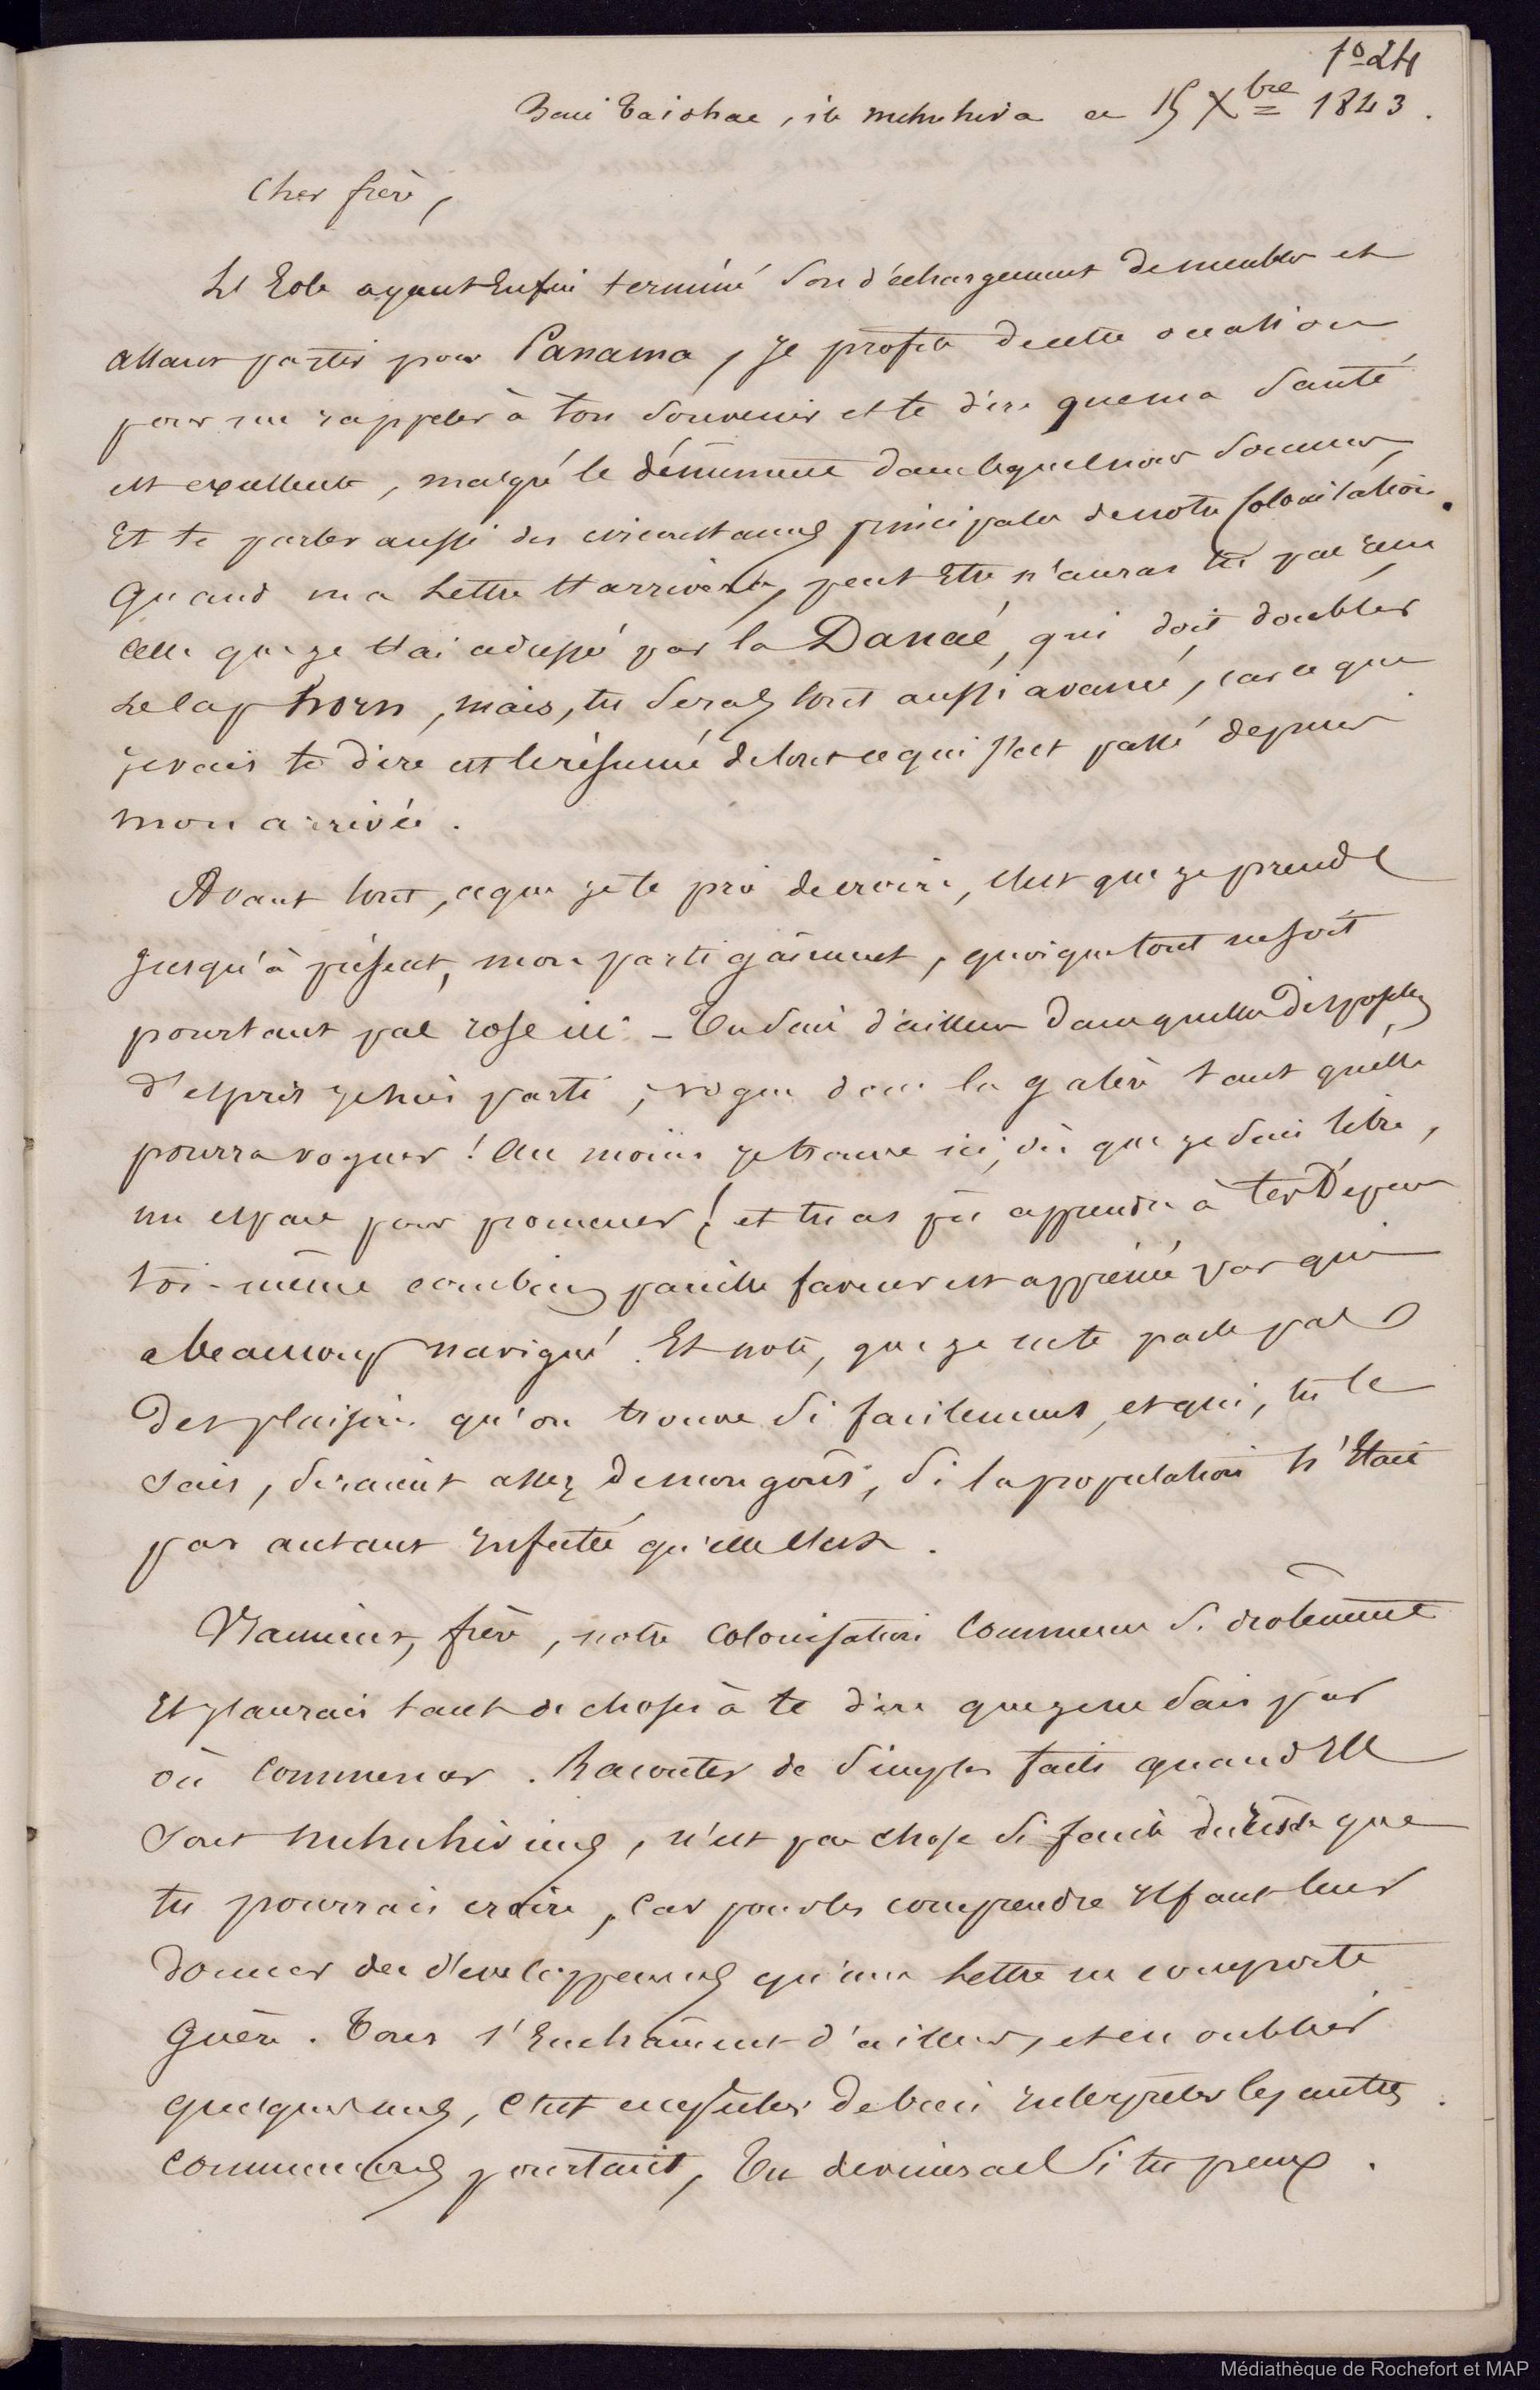 fo 24
Baie Taiohae, ile nuhuhiva ce 15 Xbre 1843.
Cher frère,
L'Eole ayant Enfin terminé son déchargement de meubles et
allant partir pour Panama, je profite de cette occasion
pour me rappeler à ton souvenir et te dire que ma santé
est excellente, malgré le dénument dans lequel nous sommes,
Et te parler aussi des circonstances principales de notre Colonisation.
Quand ma lettre t'arrivera, peut Etre n'auras tu pas reçu
celle que je t'ai adressé par la Danaé, qui doit doubler
le cap horn, mais, tu seras tout aussi avancé, car ce que
je vais te dire est le résumé de tout ce qui s'est passé depuis
mon arrivée.
Avant tout, ce que je te prie de croire, c'est que je prends
Jusqu'à présent, mon parti gaiment, quoique tout ne soit
pourtant pas rose ici - Tu sais d'ailleurs dans quelles disposit[ions]
d'esprit je suis parti, vogue donc la galère tant qu'elle
pourra voguer! Au moins je trouve ici, où que je sois libre,
un espace pour promener! et tu as pû apprendre à tes Dépens
toi-même combien pareille faveur est appréciée par qui
a beaucoup navigué. Et note, que je ne te parle pas
des plaisirs qu'on trouve si facilement, et qui, tu le
sais, seraient assez de mon goût, si la population n'Etait
pas autant infectée qu'elle l'est.
Vraiment, frère, notre Colonisation Commence si drolement
Et j'aurais tant de choses à te dire que je ne sais par
où commencer. Raconter de simples faits quand Ils
sont nuhuhiviens, n'est pas chose si facile du reste que
tu pourrais croire, Car pour les comprendre Il faut leur
donner des développemens qu'une lettre ne comporte
Guère. Tous s'Enchainent d'ailleurs, et en oublier
quelques uns, C'est empêcher de bien interprêter les autres.
Commençons pourtant, Tu devineras si tu peux.
Médiathèque de Rochefort et MAP